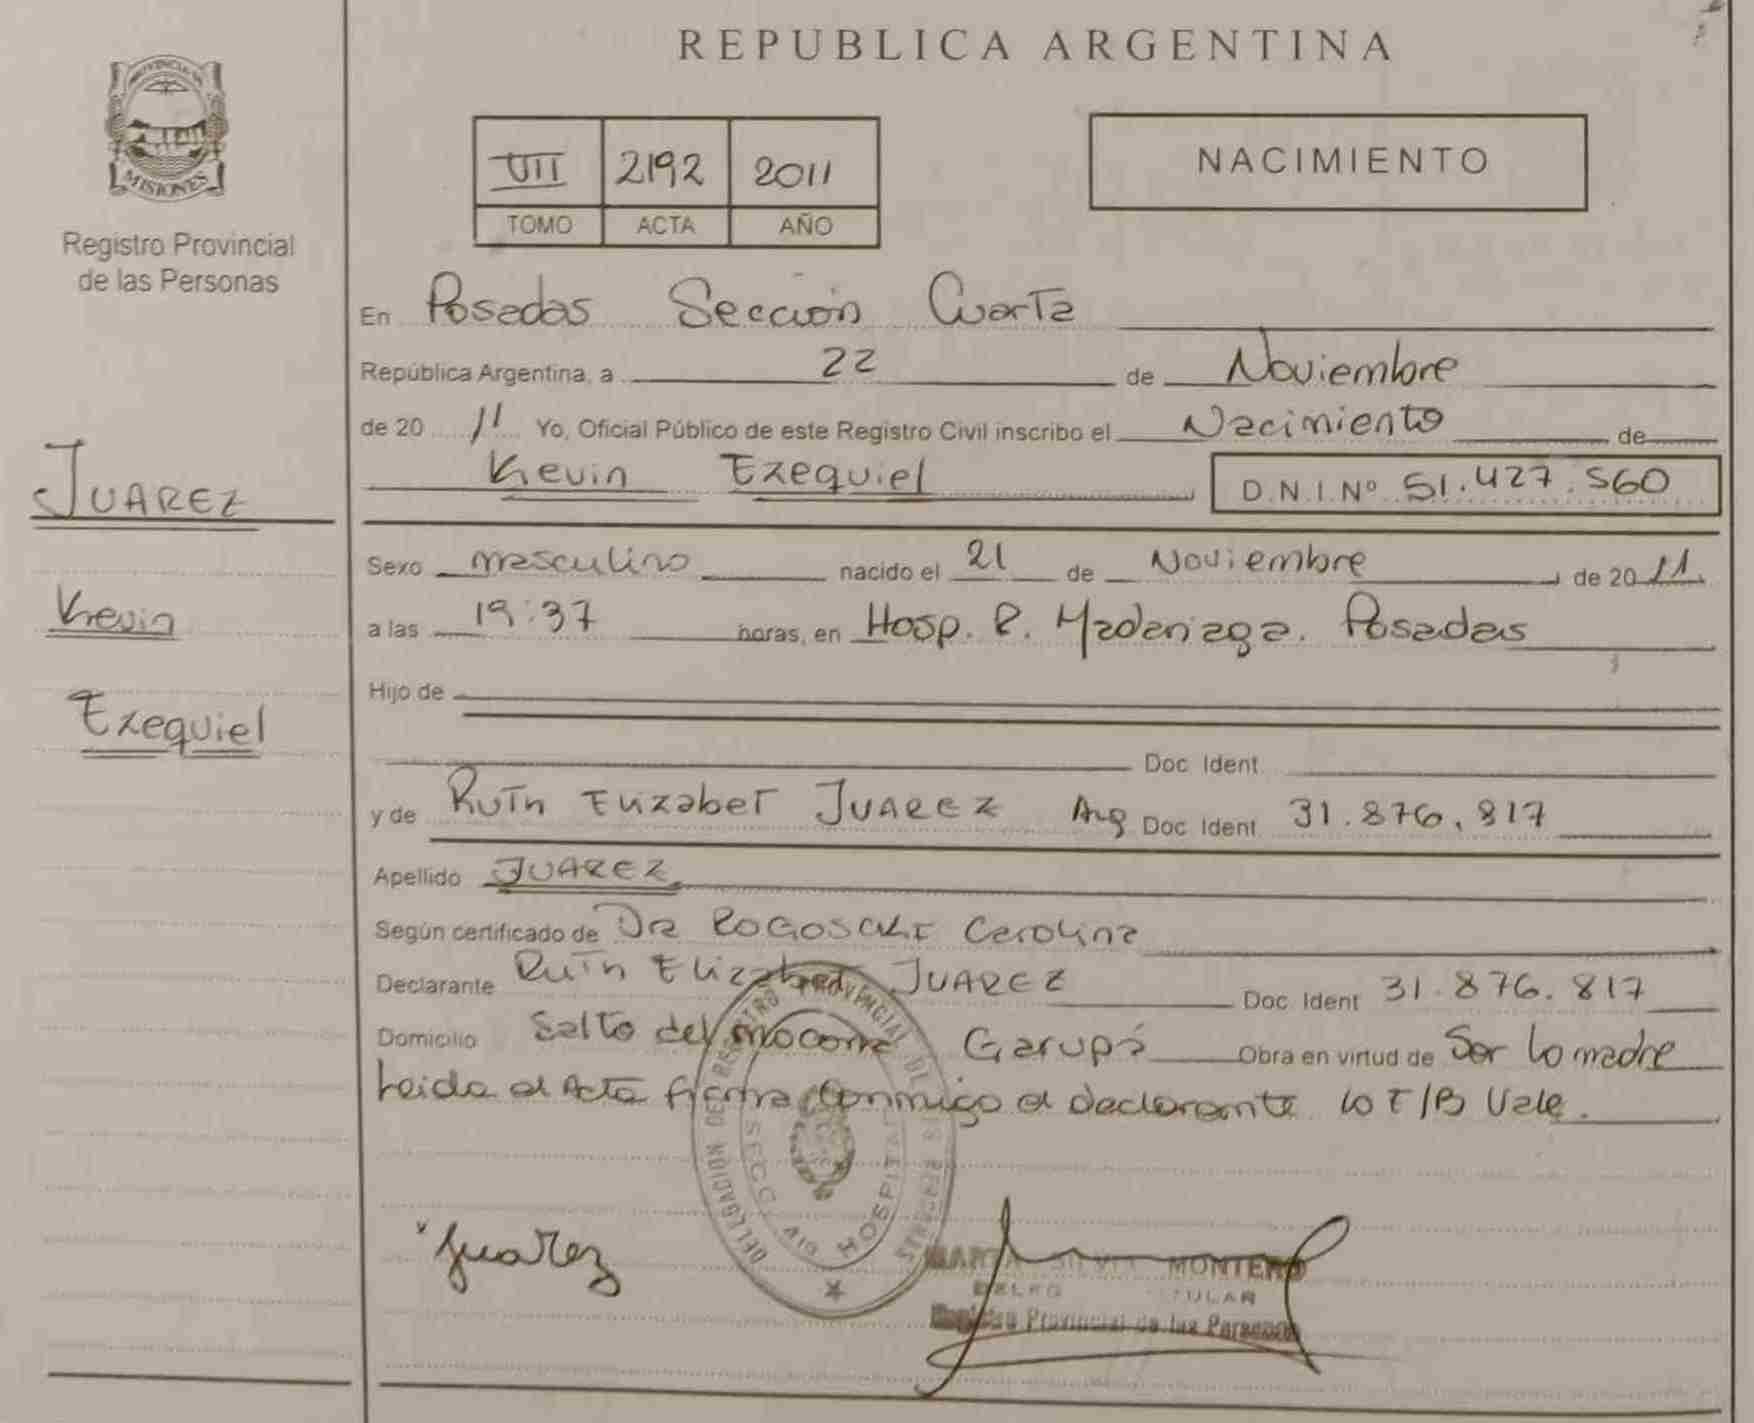 REPUBLICA ARGENTINA
PROVINCIA DE
MISIONES
Registro Provincial
de las Personas
VII 2192 2011
TOMO ACTA AÑO
NACIMIENTO
En Posadas Sección Cuarta
República Argentina, a 22 de Noviembre
de 20 11 Yo, Oficial Público de este Registro Civil inscribo el Nacimiento de
Kevin Ezequiel D.N.I. Nº 51.427.560
JUAREZ
Kevin
Ezequiel
Sexo masculino nacido el 21 de Noviembre de 20 11
a las 19:37 horas, en Hosp. R. Madariaga. Posadas
Hijo de
Doc Ident
y de Ruth Elizabet JUAREZ Arg Doc Ident 31.876.817
Apellido JUAREZ
Según certificado de Dra Carolina
Declarante Ruth Elizabet JUAREZ Doc. Ident 31.876.817
Domicilio Salto del mocona Garupá Obra en virtud de Ser la madre
Leida el Acta firma conmigo el declarante lo E/B Vale.
DELEGACION DEL REGISTRO PROVINCIAL DE LAS PERSONAS
HOSPITAL
Juarez
MONTERO
Registro Provincial de las Personas